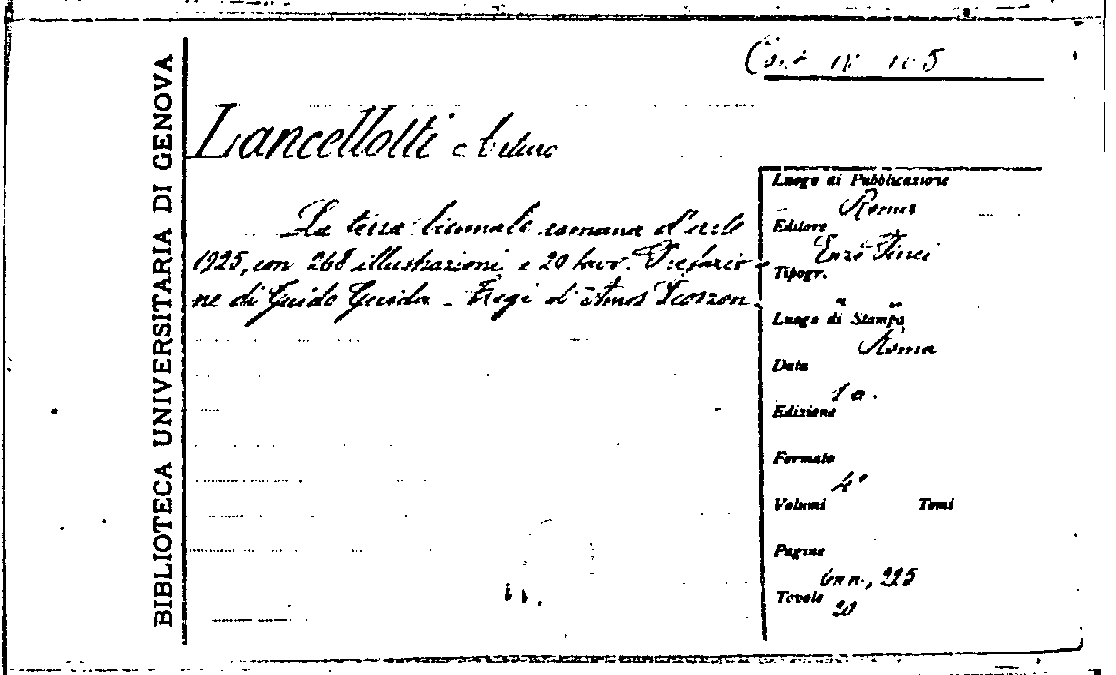 BIBLIOTECA UNIVERSITARIA DI GENOVA
Cart IV 105
Lancellotti Arturo
La terza biennale romana d'arte
1925, con 268 illustrazioni e 20 tavv. Prefazio-
ne di Guido Guida - Fregi di Amos
Luogo di Pubblicazione
Roma
Editore
Enzo Pinci
Tipogr.
"
Luogo di Stampa
Roma
Data
Edizione
1a.
Formato
4°
Volumi Tomi
Pagine
6nn., 225
Tavole
20